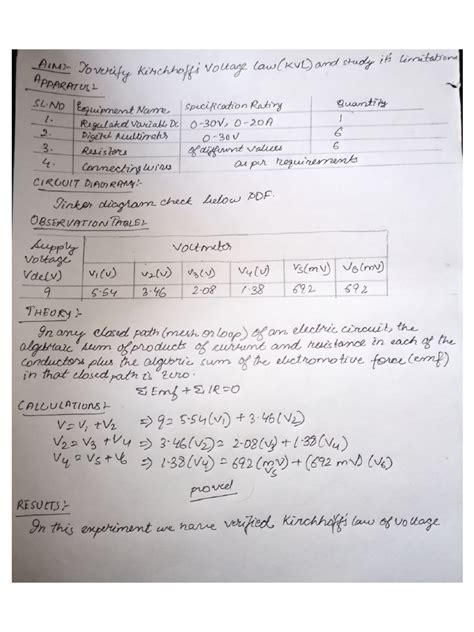 AIM:- To verify Kirchhoff's Voltage Law (KVL) and study its limitations
APPARATUS:-
SL.NO Equipment Name Specification Rating Quantity
1. Regulated Variable Dc 0-30V, 0-20A 1
2. Digital Multimeter 0-30V 6
3. Resistors of different values 6
4. Connecting wires as per requirements
CIRCUIT DIAGRAM:-
Tinker diagram check below PDF.
OBSERVATION TABLE:-
Supply Voltage Vdc(V) Voltmeter
V1(V) V2(V) V3(V) V4(V) V5(mV) V6(mV)
9 5.54 3.46 2.08 1.38 692 692
THEORY:-
In any closed path (mesh or loop) of an electric circuit, the
algebraic sum of products of current and resistance in each of the
conductors plus the algebric sum of the electromotive force (emf)
in that closed path is zero.
ΣEmf + ΣIR = 0
CALCULATIONS:-
V = V1 + V2 ⇒ 9 = 5.54(V1) + 3.46(V2)
V2 = V3 + V4 ⇒ 3.46(V2) = 2.08(V3) + 1.38(V4)
V4 = V5 + V6 ⇒ 1.38(V4) = 692(mV) V5 + (692 mV) (V6)
proved
RESULTS:-
In this experiment we have verified Kirchhoff's law of voltage